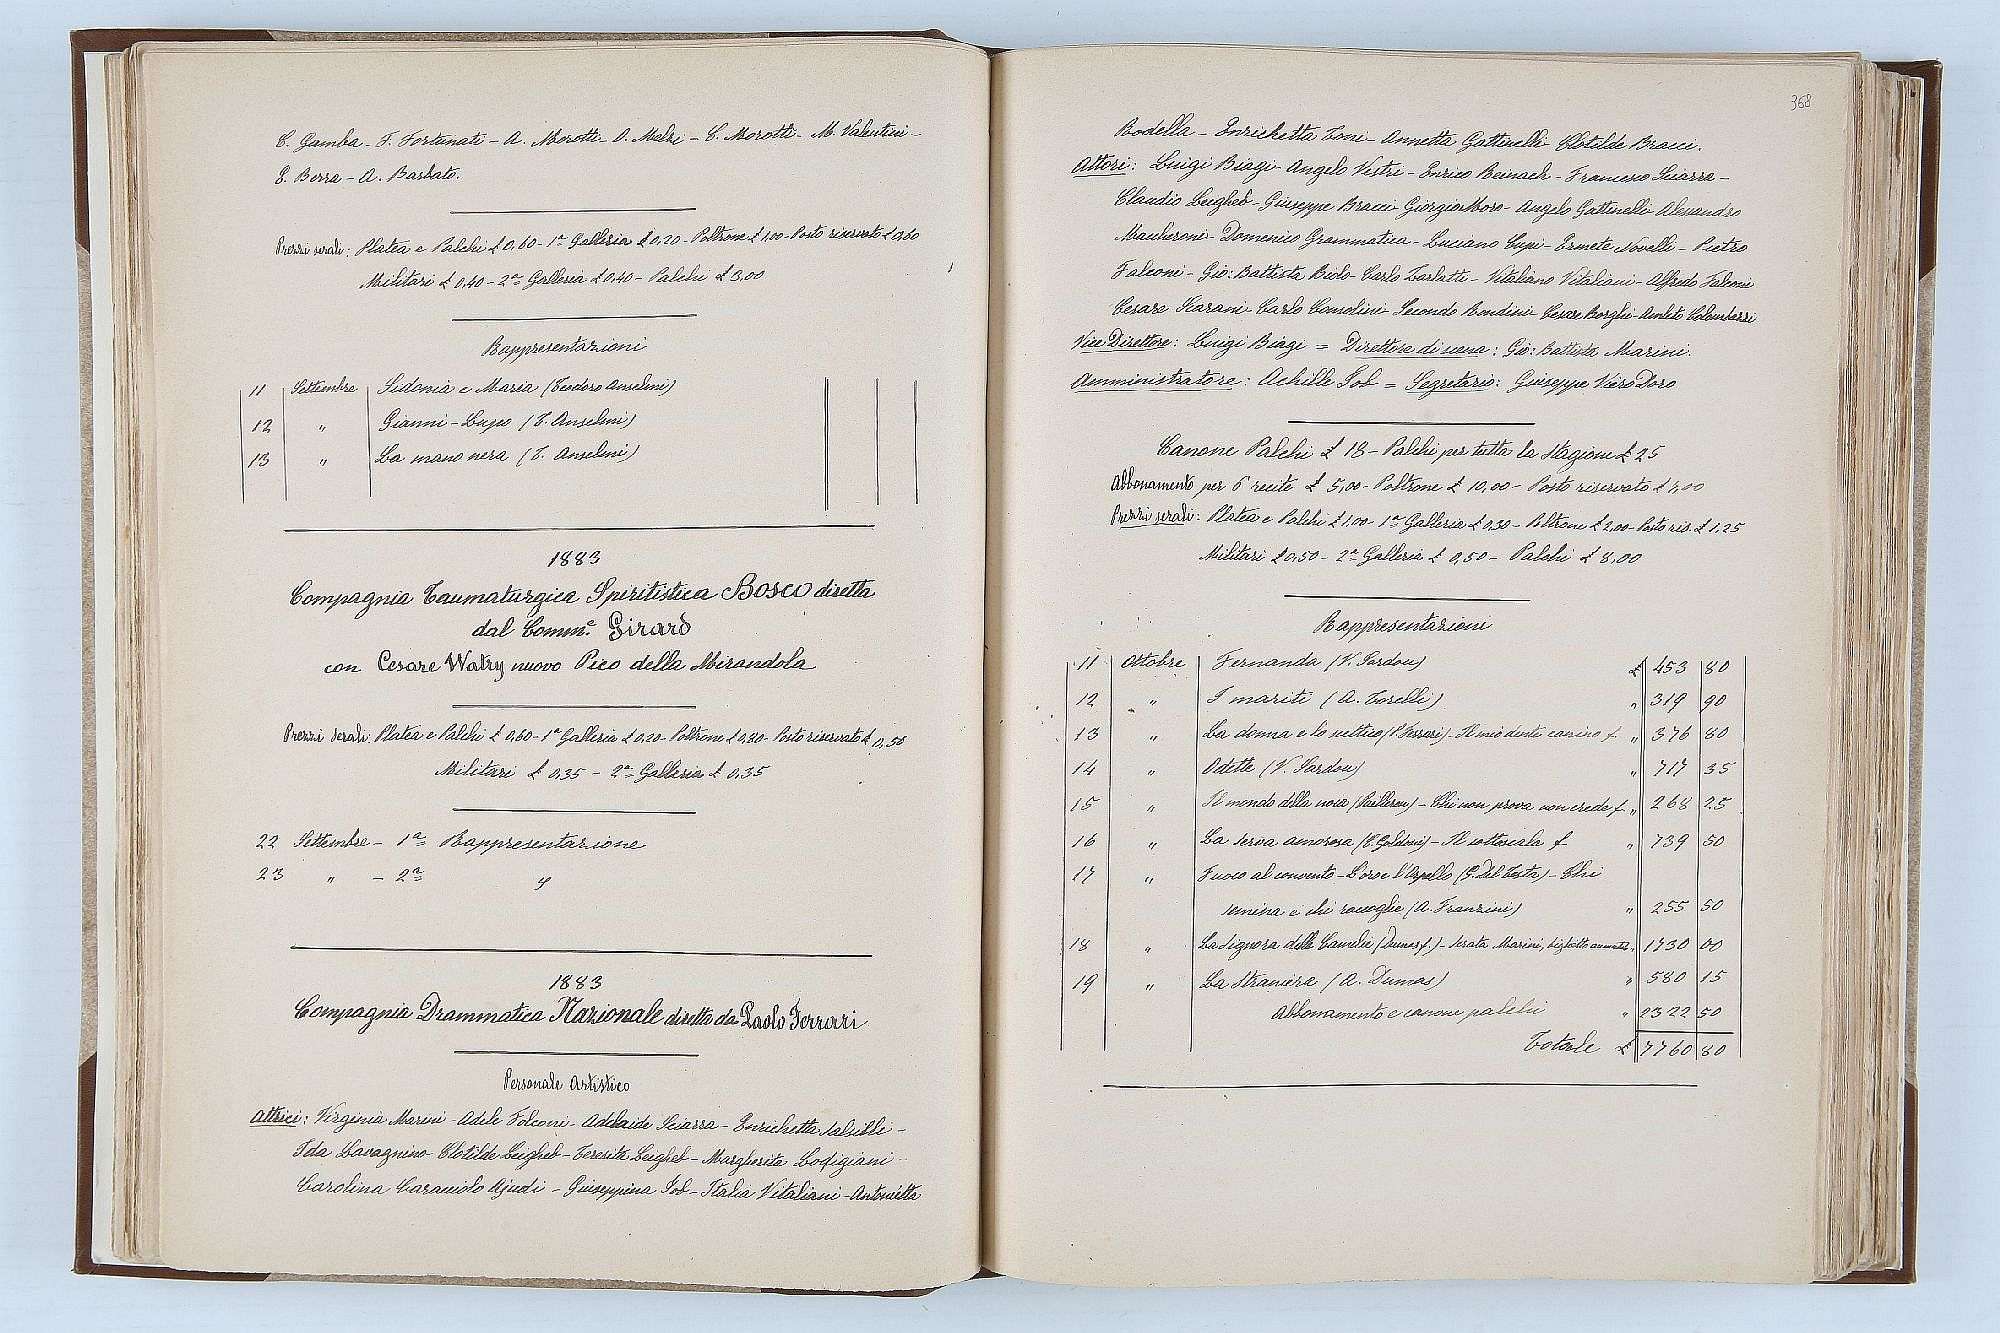 C. Gamba - F. Fortunati - A. Morotti - A. Melzi - C. Morotti - M. Valentini -
E. Berra - A. Barbato.
Prezzi serali: Platea e Palchi £ 0,60 - 1ª Galleria £ 0,20 - Poltrone £ 1,00 - Posto riservato £ 0,60
Militari £ 0,40 - 2ª Galleria £ 0,40 - Palchi £ 3,00
Rappresentazioni
11 Settembre Sidonia e Maria (Teodoro Anselmi)
12 " Gianni - Lupo (T. Anselmi)
13 " La mano nera (T. Anselmi)
1883
Compagnia Taumaturgica Spiritistica Bosco diretta
dal Comm.e Girard
con Cesare Watry nuovo Pico della Mirandola
Prezzi serali: Platea e Palchi £ 0,60 - 1ª Galleria £ 0,20 - Poltrone £ 0,80 - Posto riservato £ 0,50
Militari £ 0,35 - 2ª Galleria £ 0,35
22 Settembre - 1ª Rappresentazione
23 " - 2ª "
1883
Compagnia Drammatica Nazionale diretta da Paolo Ferrari
Personale Artistico
Attrici: Virginia Marini - Adele Falconi - Adelaide Sciarra - Enrichetta Salvilli -
Ida Lavagnino - Clotilde Leigheb - Teresita Leigheb - Margherita Lodigiani -
Carolina Caracciolo Ajudi - Giuseppina Job - Italia Vitaliani - Antonietta
368
Rodella - Enrichetta Toni - Annetta Gattinelli - Clotilde Bracci.
Attori: Luigi Biagi - Angelo Vestri - Enrico Reinach - Francesco Sciarra -
Claudio Leigheb - Giuseppe Bracci - Giorgio Moro - Angelo Gattinelli - Alessandro
Marcheroni - Domenico Grammatica - Luciano Cupi - Ermete Novelli - Pietro
Falconi - Gio: Battista Biolo - Carlo Zarlatti - Vitaliano Vitaliani - Alfredo Falconi
Cesare Scarani - Carlo Consolini - Secondo Bondini - Cesare Borghi - Amleto Colombazzi
Vice Direttore: Luigi Biagi = Direttore di scena: Gio: Battista Marini.
Amministratore: Achille Job = Segretario: Giuseppe Viero Doro
Canone Palchi £ 18 - Palchi per tutta la Stagione £ 25
Abbonamento per 6 recite £ 5,00 - Poltrone £ 10,00 - Posto riservato £ 7,00
Prezzi serali: Platea e Palchi £ 1,00 - 1ª Galleria £ 0,30 - Poltrone £ 2,00 - Posto ris. £ 1,25
Militari £ 0,50 - 2ª Galleria £ 0,50 - Palchi £ 8,00
Rappresentazioni
11 Ottobre Fernanda (V. Sardou) £ 453 80
12 " I mariti (A. Torelli) " 319 90
13 " La donna e lo scettico (P. Ferrari) - Il mio dente canino f. " 376 80
14 " Odette (V. Sardou) " 717 35
15 " Il mondo della noia (Pailleron) - Chi non prova non crede f. " 268 25
16 " La serva amorosa (C. Goldoni) - Il sottoscala f. " 739 50
17 " Fuoco al convento - L'oro e l'orpello (G. Del Testa) - Chi
semina e chi raccoglie (A. Franzini) " 255 50
18 " La Signora delle Camelie (Dumas f.) - Serata Marini, biglietto aumento " 1730 00
19 " La Straniera (A. Dumas) " 580 15
Abbonamento e canone palchi " 2322 50
Totale £ 7760 80